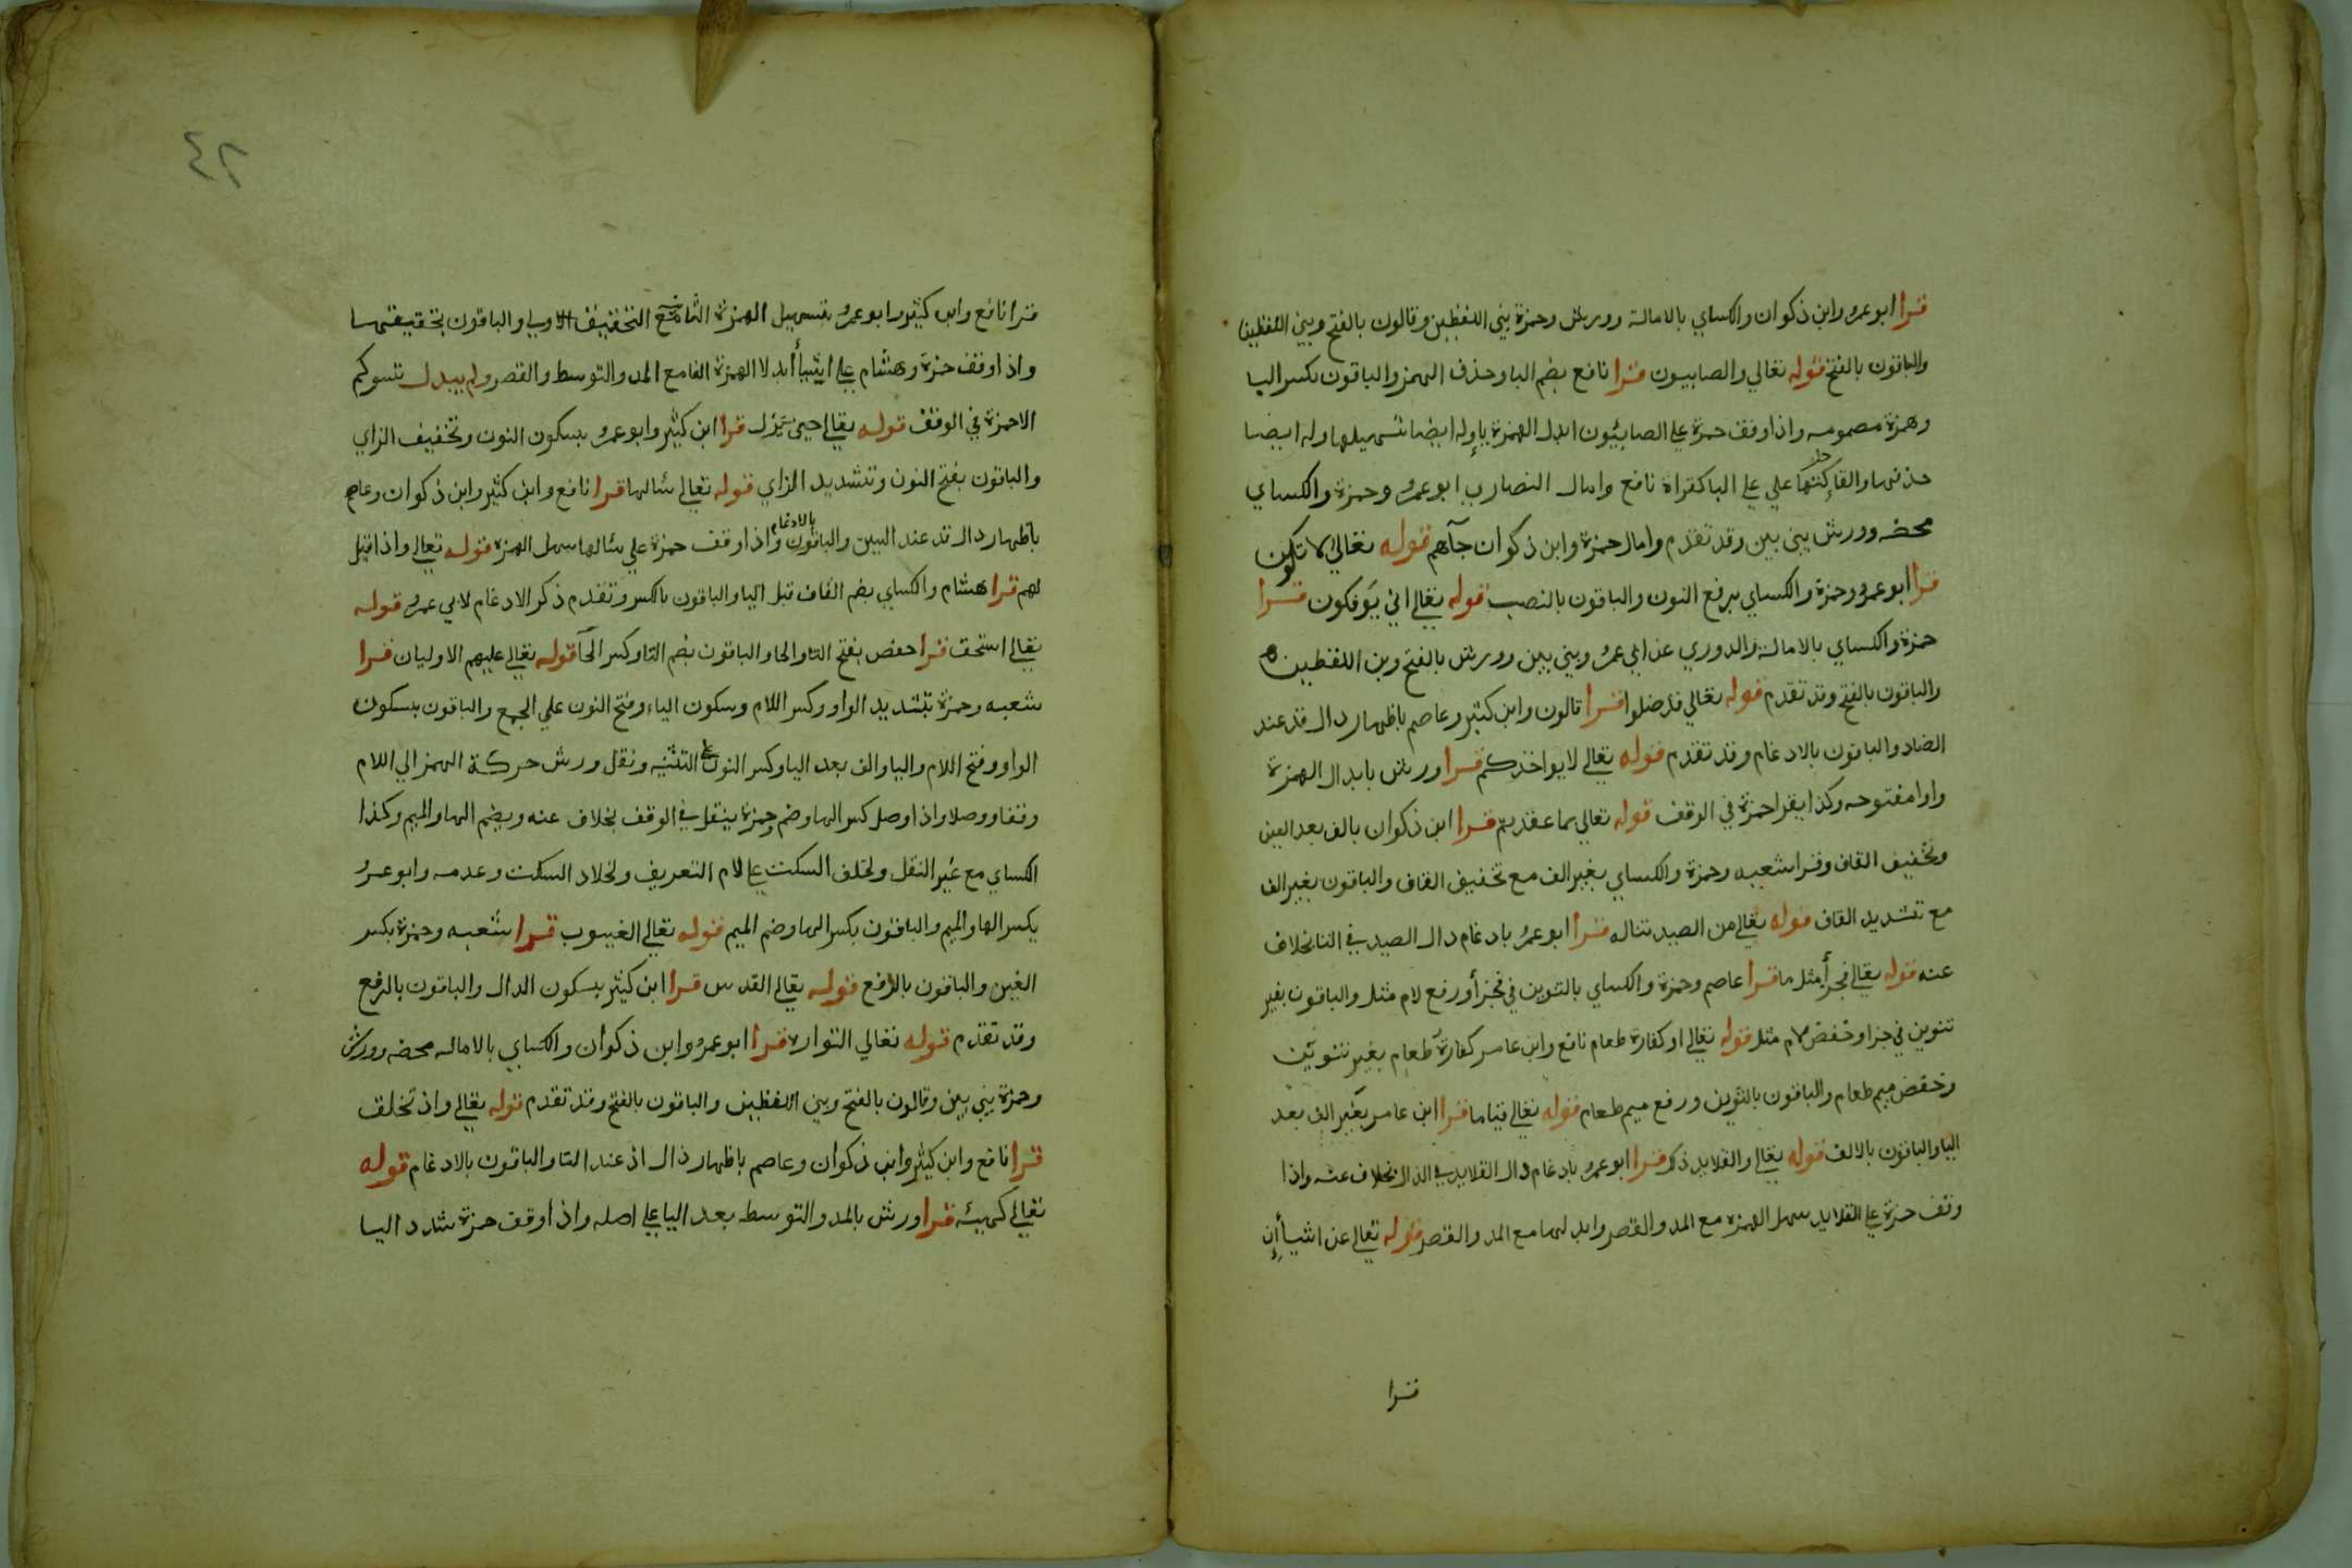 قرا ابو عمرو وابن ذكوان والكساي بالامالة وورش وحمزة بين اللفظين وقالون بالفتح وبين اللفظين
والباقون بالفتح قوله تعالي والصابيون قرا نافع بضم البا وحذف الهمز والباقون بكسر البا
وهمزة مضمومه واذا وقف حمزة علي الصابيُون ابدل الهمزة ياء وله ايضا تسهيلها وله ايضا
حذفها والقا حركتها علي علي البا كقراة نافع وامال النصاري ابو عمرو وحمزة والكساي
محضه وورش بين بين وقد تقدم وامال حمزة وابن ذكوان جآهم قوله تعالي الا تكون
قرا ابو عمرو وحمزة والكساي برفع النون والباقون بالنصب قوله تعالي اني يوفكون قرا
حمزة والكساي بالامالة والدوري عن ابي عمرو بين بين وورش بالفتح وبين اللفظين
والباقون بالفتح وقد تقدم قوله تعالي قد ضلوا قرا قالون وابن كثير وعاصم باظهار دال قد عند
الضاد والباقون بالادغام وقد تقدم قوله تعالي لا يواخذكم قرا ورش بابدال الهمزة
واوا مفتوحه وكذا يقرا حمزة في الوقف قوله تعالي بما عقدتم قرا ابن ذكوان بالف بعد العين
وتخفيف القاف وقرا شعبه وحمزة والكساي بغير الف مع تخفيف القاف والباقون بغير الف
مع تشديد القاف قوله تعالي من الصيد تناله قرا ابو عمرو بادغام دال الصيد في التا بخلاف
عنه قوله تعالي فجزأ مثل ما قرا عاصم وحمزة والكساي بالتنوين في فجزأ ورفع لام مثل والباقون بغير
تنوين في جزا وخفض لام مثل قوله تعالي او كفارة طعام نافع وابن عامر كفارة طعام بغير تنوين
وخفض ميم طعام والباقون بالتنوين ورفع ميم طعام قوله تعالي قياما قرا ابن عامر بغير الف بعد
اليا والباقون بالالف قوله تعالي والقلايد ذلك قرا ابو عمرو بادغام دال القلايد في الذال بخلاف عنه واذا
وقف حمزة علي القلايد سهل الهمزه مع المد والقصر وابدلها مع المد والقصر قوله تعالي عن اشيا إن
قرا
٤٢
قرا نافع وابن كثير وابو عمرو بتسهيل الهمزة الثانية مع التخفيف الاولي والباقون بتحقيقهما
واذا وقف حمزة وهشام علي اشيا أبدلا الهمزة الفا مع المد والتوسط والقصر ولم يبدل تسوكم
الا حمزة في الوقف قوله تعالي حين ينزل قرا ابن كثير وابو عمرو بسكون النون وتخفيف الزاي
والباقون بفتح النون وتشديد الزاي قوله تعالي سالها قرا نافع وابن كثير وابن ذكوان وعاصم
باظهار دال قد عند السين والباقون بالادغام واذا وقف حمزة علي سالها سهل الهمزه قوله تعالي واذا قيل
لهم قرا هشام والكساي بضم القاف قبل اليا والباقون بالكسر وتقدم ذكر الادغام لابي عمرو قوله
تعالي استحق قرا حفص بفتح التا والحا والباقون بضم التا وكسر الحا قوله تعالي عليهم الاوليان قرا
شعبه وحمزة بتشديد الواو وكسر اللام وسكون الياء وفتح النون علي الجمع والباقون بسكون
الواو وفتح اللام واليا والف بعد اليا وكسر النون علي التثنيه ونقل ورش حركة الهمز الي اللام
وقفا ووصلا واذا وصل كسر الها وضم وحمزة ينقل في الوقف بخلاف عنه وبضم الها والميم وكذا
الكساي مع غير النقل ولخلف السكت علي لام التعريف ولخلاد السكت وعدمه وابو عمرو
بكسر الها والميم والباقون بكسر الها وضم الميم قوله تعالي الغيوب قرا شعبه وحمزة بكسر
الغين والباقون بالرفع قوله تعالي القدس قرا ابن كثير بسكون الدال والباقون بالرفع
وقد تقدم قوله تعالي التوارة قرا ابو عمرو وابن ذكوان والكساي بالاماله محضه وورش
وحمزة بين بين وقالون بالفتح وبين اللفظين والباقون بالفتح وقد تقدم قوله تعالي واذ تخلق
قرا نافع وابن كثير وابن ذكوان وعاصم باظهار ذال اذ عند التا والباقون بالادغام قوله
تعالي كهيئه قرا ورش بالمد والتوسط بعد اليا علي اصله واذا وقف حمزة شدد اليا